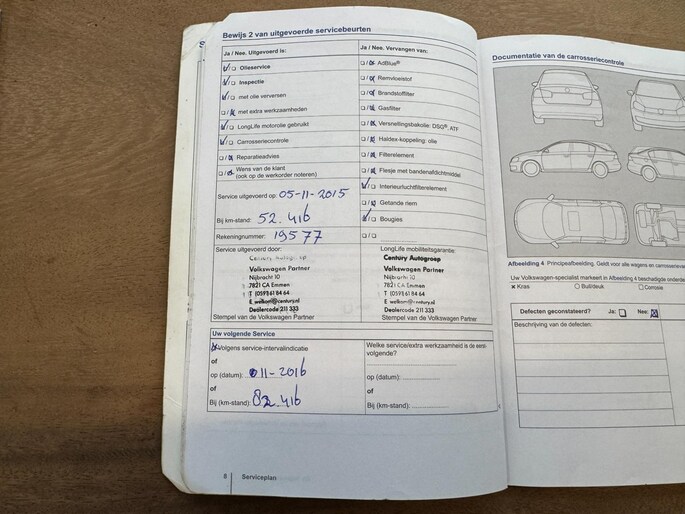 Bewijs 2 van uitgevoerde servicebeurten
Ja / Nee. Uitgevoerd is:
Olieservice
Inspectie
met olie verversen
met extra werkzaamheden
LongLife motorolie gebruikt
Carrosseriecontrole
Reparatieadvies
Wens van de klant
(ook op de werkorder noteren)
Service uitgevoerd op: 05-11-2015
Bij km-stand: 52.416
Rekeningnummer: 19577
Ja / Nee. Vervangen van:
AdBlue®
Remvloeistof
Brandstoffilter
Gasfilter
Versnellingsbakolie: DSG®, ATF
Haldex-koppeling: olie
Filterelement
Flesje met bandenafdichtmiddel
Interieurluchtfilterelement
Getande riem
Bougies
Service uitgevoerd door:
Century Autogroep
Volkswagen Partner
Nijbracht 10
7821 CA Emmen
T (0591) 61 84 64
E welkom@century.nl
Dealercode 211 333
Stempel van de Volkswagen Partner
LongLife mobiliteitsgarantie:
Century Autogroep
Volkswagen Partner
Nijbracht 10
7821 CA Emmen
T (0591) 61 84 64
E welkom@century.nl
Dealercode 211 333
Stempel van de Volkswagen Partner
Uw volgende Service
Volgens service-intervalindicatie
of
op (datum): 11-2016
of
Bij (km-stand): 82.416
Welke service/extra werkzaamheid is de eerst-
volgende?
op (datum):
of
Bij (km-stand):
8 Serviceplan
Documentatie van de carrosseriecontrole
Afbeelding 4 Principeafbeelding. Geldt voor alle wagens en
Uw Volkswagen-specialist markeert in Afbeelding 4 beschadigde
x Kras O Buil/deuk □ Corrosie
Defecten geconstateerd? Ja: Nee:
Beschrijving van de defecten: